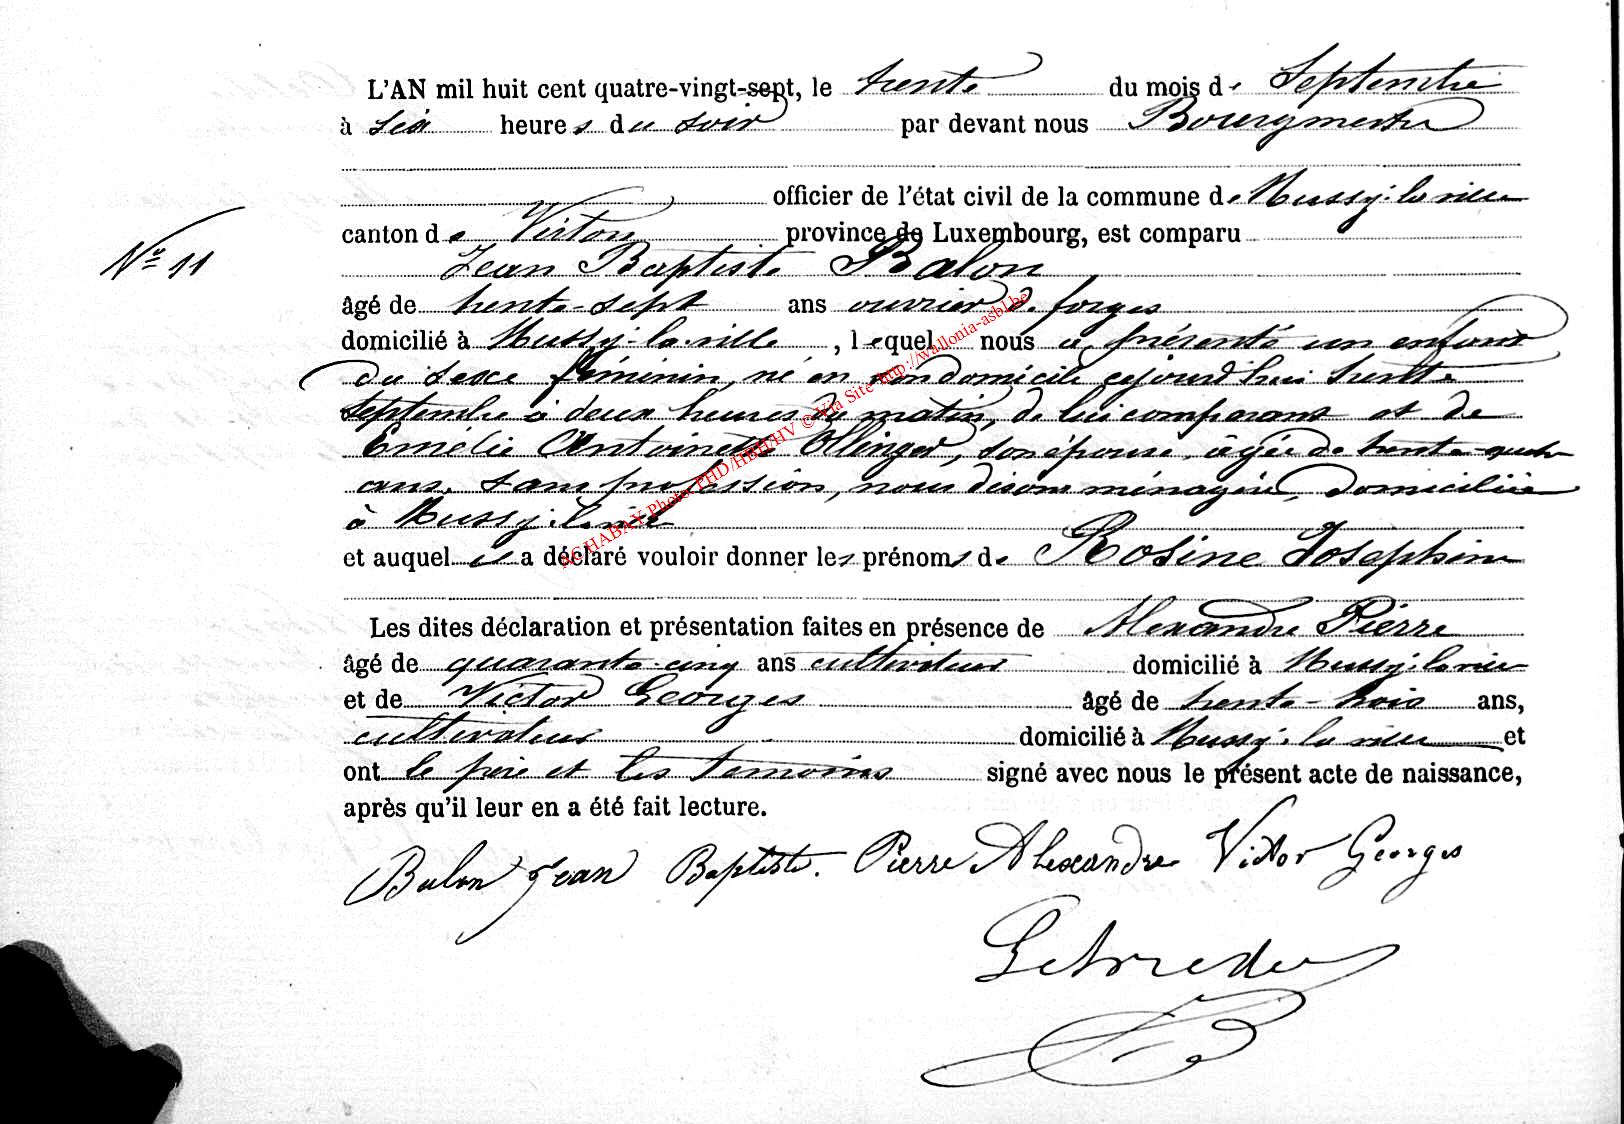 L'AN mil huit cent quatre-vingt-sept, le trente du mois de Septembre
à six heures du soir par devant nous Bourgmestre
officier de l'état civil de la commune de Mussy-la-ville
canton de Virton province de Luxembourg, est comparu
N° 11
Jean Baptiste Balon,
âgé de trente-sept ans ouvrier de forges
domicilié à Mussy-la-ville, lequel nous a présenté un enfant
du sexe féminin, né en son domicile cejourd'hui trente
septembre à deux heures du matin, de lui comparant et de
Emélie Antoinette Ollinger, son épouse, âgée de trente-
ans, sans profession, nous disons ménagère, domiciliée
à Mussy-la-ville
et auquel il a déclaré vouloir donner les prénoms de Rosine Josephine
Les dites déclaration et présentation faites en présence de Alexandre Pierre
âgé de quarante-cinq ans cultivateur domicilié à Mussy-la-ville
et de Victor Georges âgé de trente-trois ans,
cultivateur domicilié à Mussy-la-ville et
ont le père et les témoins signé avec nous le présent acte de naissance,
après qu'il leur en a été fait lecture.
Balon Jean Baptiste. Pierre Alexandre Victor Georges
ACHABAY Photo: PHD/HBH/HV © Via Site http://wallonia-asbl.be